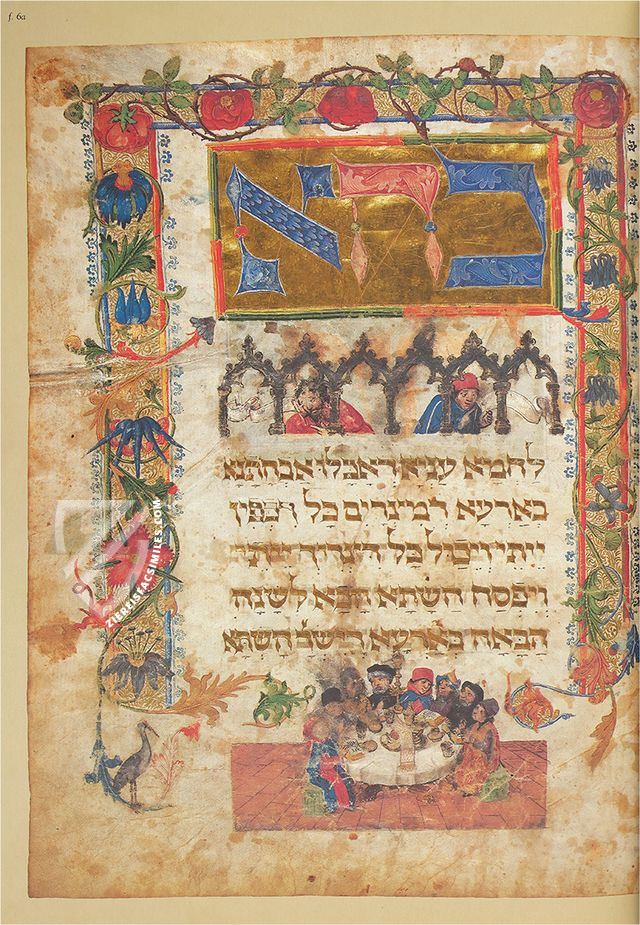 f. 6a
כהא
לחמא עניא דאכלו אבהתנא
בארעא דמצרים כל דכפין
ייתי וייכול כל דצריך ייתי
ויפסח השתא הכא לשנה
הבאה בארעא דישר השתא
ZIEREISFACSIMILES.COM